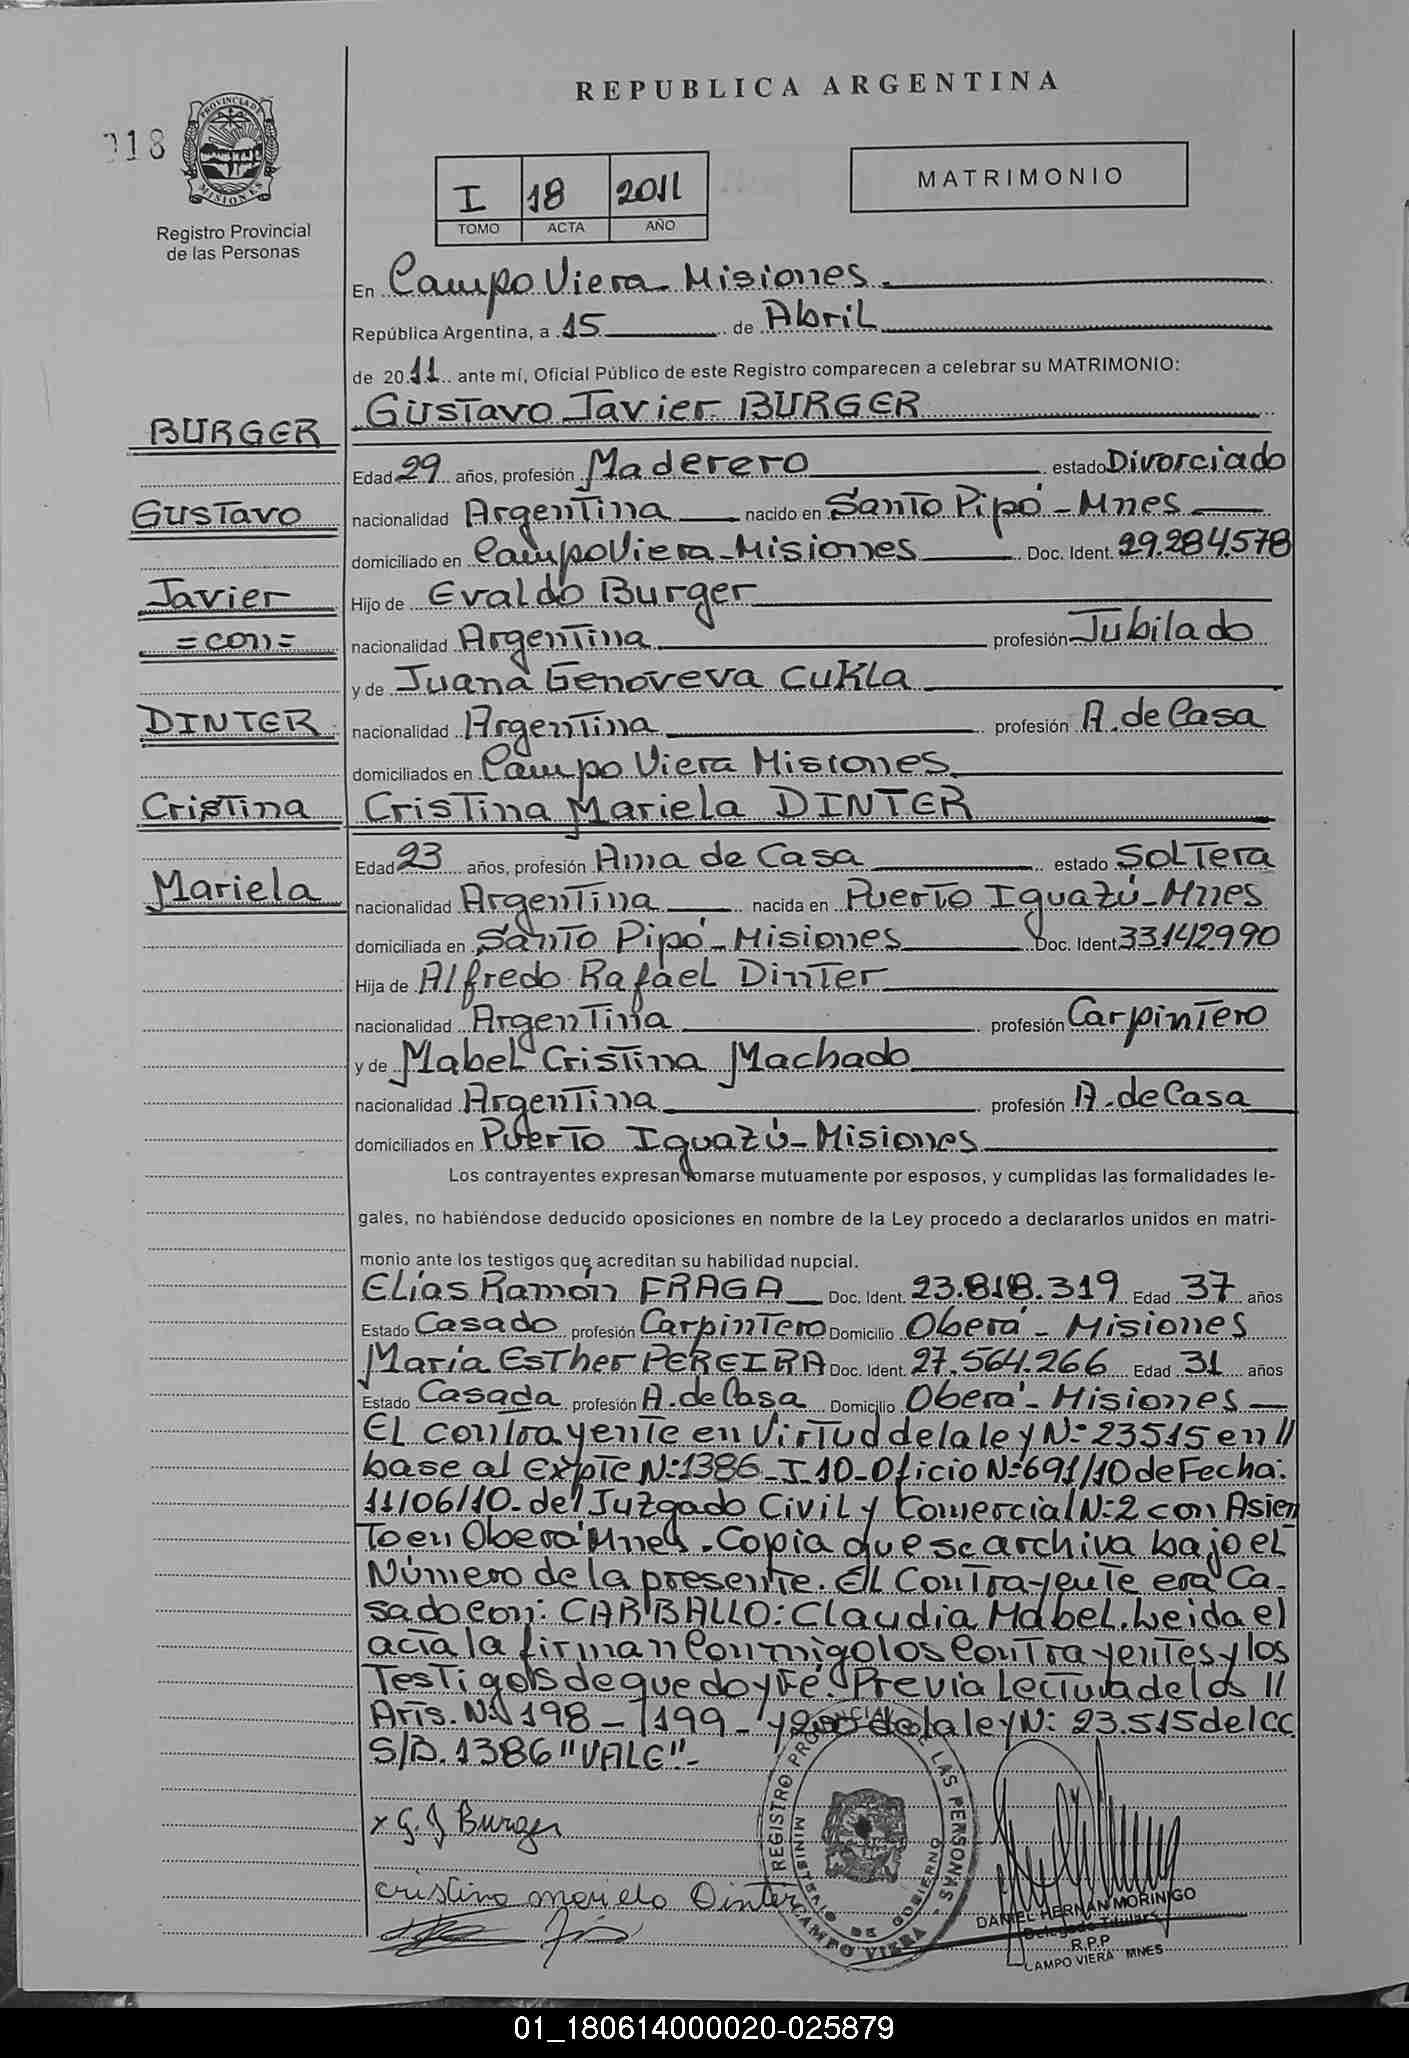 REPUBLICA ARGENTINA
018
PROVINCIA DE MISIONES
Registro Provincial
de las Personas
I 18 2011
TOMO ACTA AÑO
MATRIMONIO
En Campo Viera - Misiones.
República Argentina, a 15 de Abril
de 2011 ante mí, Oficial Público de este Registro comparecen a celebrar su MATRIMONIO:
BURGER
Gustavo
Javier
=con=
DINTER
Cristina
Mariela
Gustavo Javier BURGER
Edad 29 años, profesión Maderero estado Divorciado
nacionalidad Argentina nacido en Santo Pipó - Mnes
domiciliado en Campo Viera - Misiones Doc. Ident. 29.284.578
Hijo de Evaldo Burger
nacionalidad Argentina profesión Jubilado
y de Juana Genoveva Cukla
nacionalidad Argentina profesión A. de Casa
domiciliados en Campo Viera Misiones
Cristina Mariela DINTER
Edad 23 años, profesión Ama de Casa estado Soltera
nacionalidad Argentina nacida en Puerto Iguazú - Mnes
domiciliada en Santo Pipó - Misiones Doc. Ident 33.142.990
Hija de Alfredo Rafael Dinter
nacionalidad Argentina profesión Carpintero
y de Mabel Cristina Machado
nacionalidad Argentina profesión A. de Casa
domiciliados en Puerto Iguazú - Misiones
Los contrayentes expresan tomarse mutuamente por esposos, y cumplidas las formalidades le-
gales, no habiéndose deducido oposiciones en nombre de la Ley procedo a declararlos unidos en matri-
monio ante los testigos que acreditan su habilidad nupcial.
Elías Ramón FRAGA Doc. Ident. 23.818.319 Edad 37 años
Estado Casado profesión Carpintero Domicilio Oberá - Misiones
María Esther PEREIRA Doc. Ident. 27.564.266 Edad 31 años
Estado Casada profesión A. de Casa Domicilio Oberá - Misiones
El contrayente en Virtud de la ley Nº 23515 en //
base al Expte Nº 1386 - I 10 - Oficio Nº 691/10 de Fecha:
11/06/10 - del Juzgado Civil y Comercial Nº 2 con Asien
to en Oberá Mnes. Copia que se archiva bajo el
Número de la presente. El Contrayente era Ca-
sado con: CARBALLO: Claudia Mabel. Leida el
acta la firman conmigo los contrayentes y los
Testigos de que doy Fé. Previa Lectura de los //
Arts. Nº 198 - 199 - y 200 de la ley Nº 23.515 del CC.
S/B. 1386 "VALE" -
x G. J Burger
cristina mariela Dinter
REGISTRO PROVINCIAL DE LAS PERSONAS
MINISTERIO DE GOBIERNO
CAMPO VIERA
DANIEL HERNAN MORINIGO
Delegado Titular
R.P.P
CAMPO VIERA MNES
01_180614000020-025879